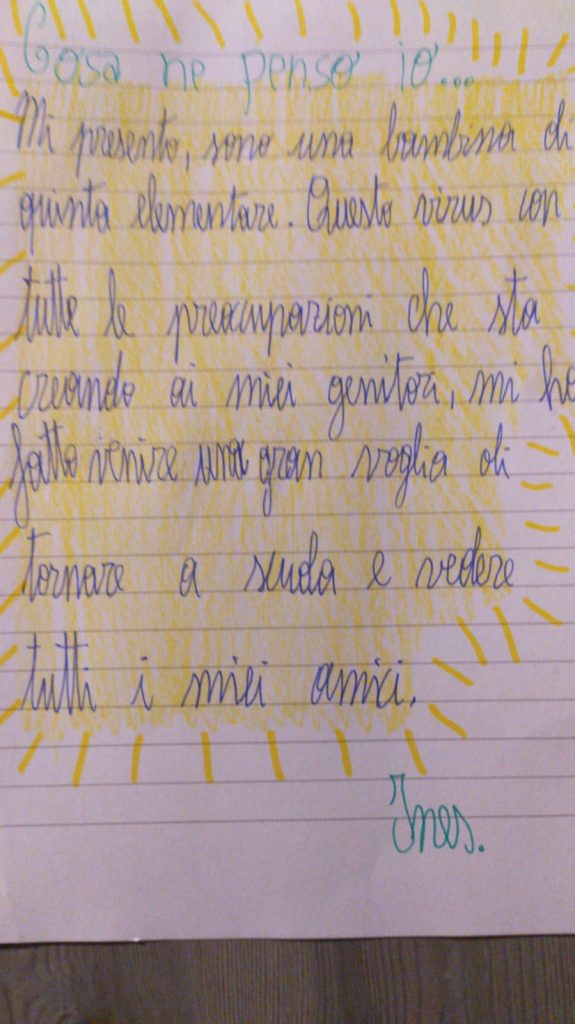 Cosa ne penso io...
Mi presento, sono una bambina di
quinta elementare. Questo virus con
tutte le preoccupazioni che sta
creando ai miei genitori, mi ha
fatto venire una gran voglia di
tornare a scuola e vedere
tutti i miei amici.
Ines.